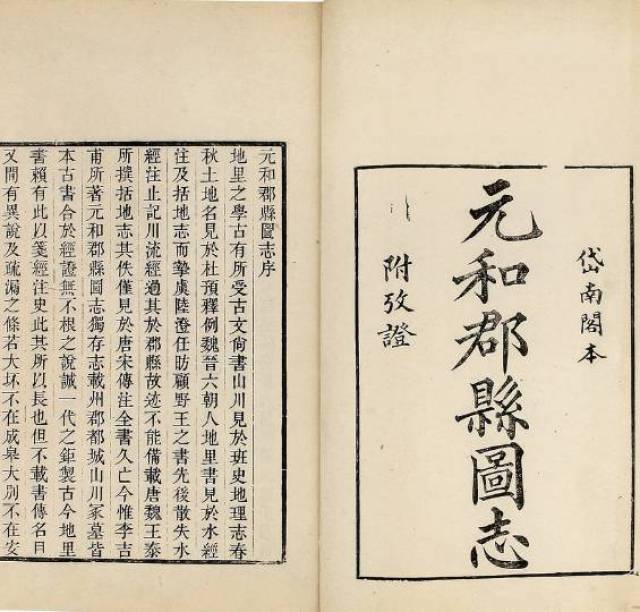 岱南閣本
元和郡縣圖志
附攷證
元和郡縣圖志序
地里之學古有所受古文尙書山川見於班史地理志春
秋土地名見於杜預釋例魏晉六朝人地里書見於水經
注及括地志而摯虞陸澄任昉顧野王之書先後散失水
經注止記川流經過其於郡縣故迹不能備載唐魏王泰
所撰括地志其佚僅見於唐宋傳注全書久亡今惟李吉
甫所著元和郡縣圖志獨存志載州郡都城山川冢墓皆
本古書合於經證無不根之說誠一代之鉅製古今地里
書賴有此以箋經注史此其所以長也但不載書傳名目
又間有異說及疏漏之條若大坯不在成皋大別不在安